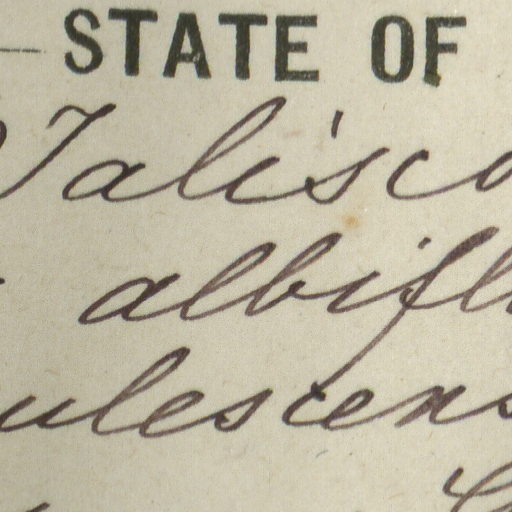 STATE OF
Jalisco
albifl
ulescens